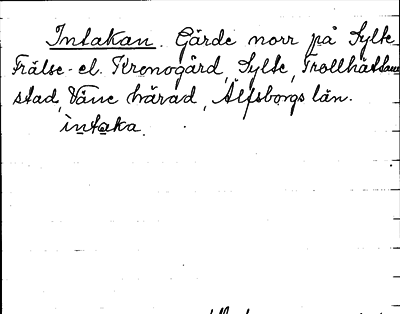 Intakan. Gärde norr på Sylte
Frälse- el. Kronogård, Sylte, Trollhättans
stad, Väne härad, Älfsborgs län.
intaka.